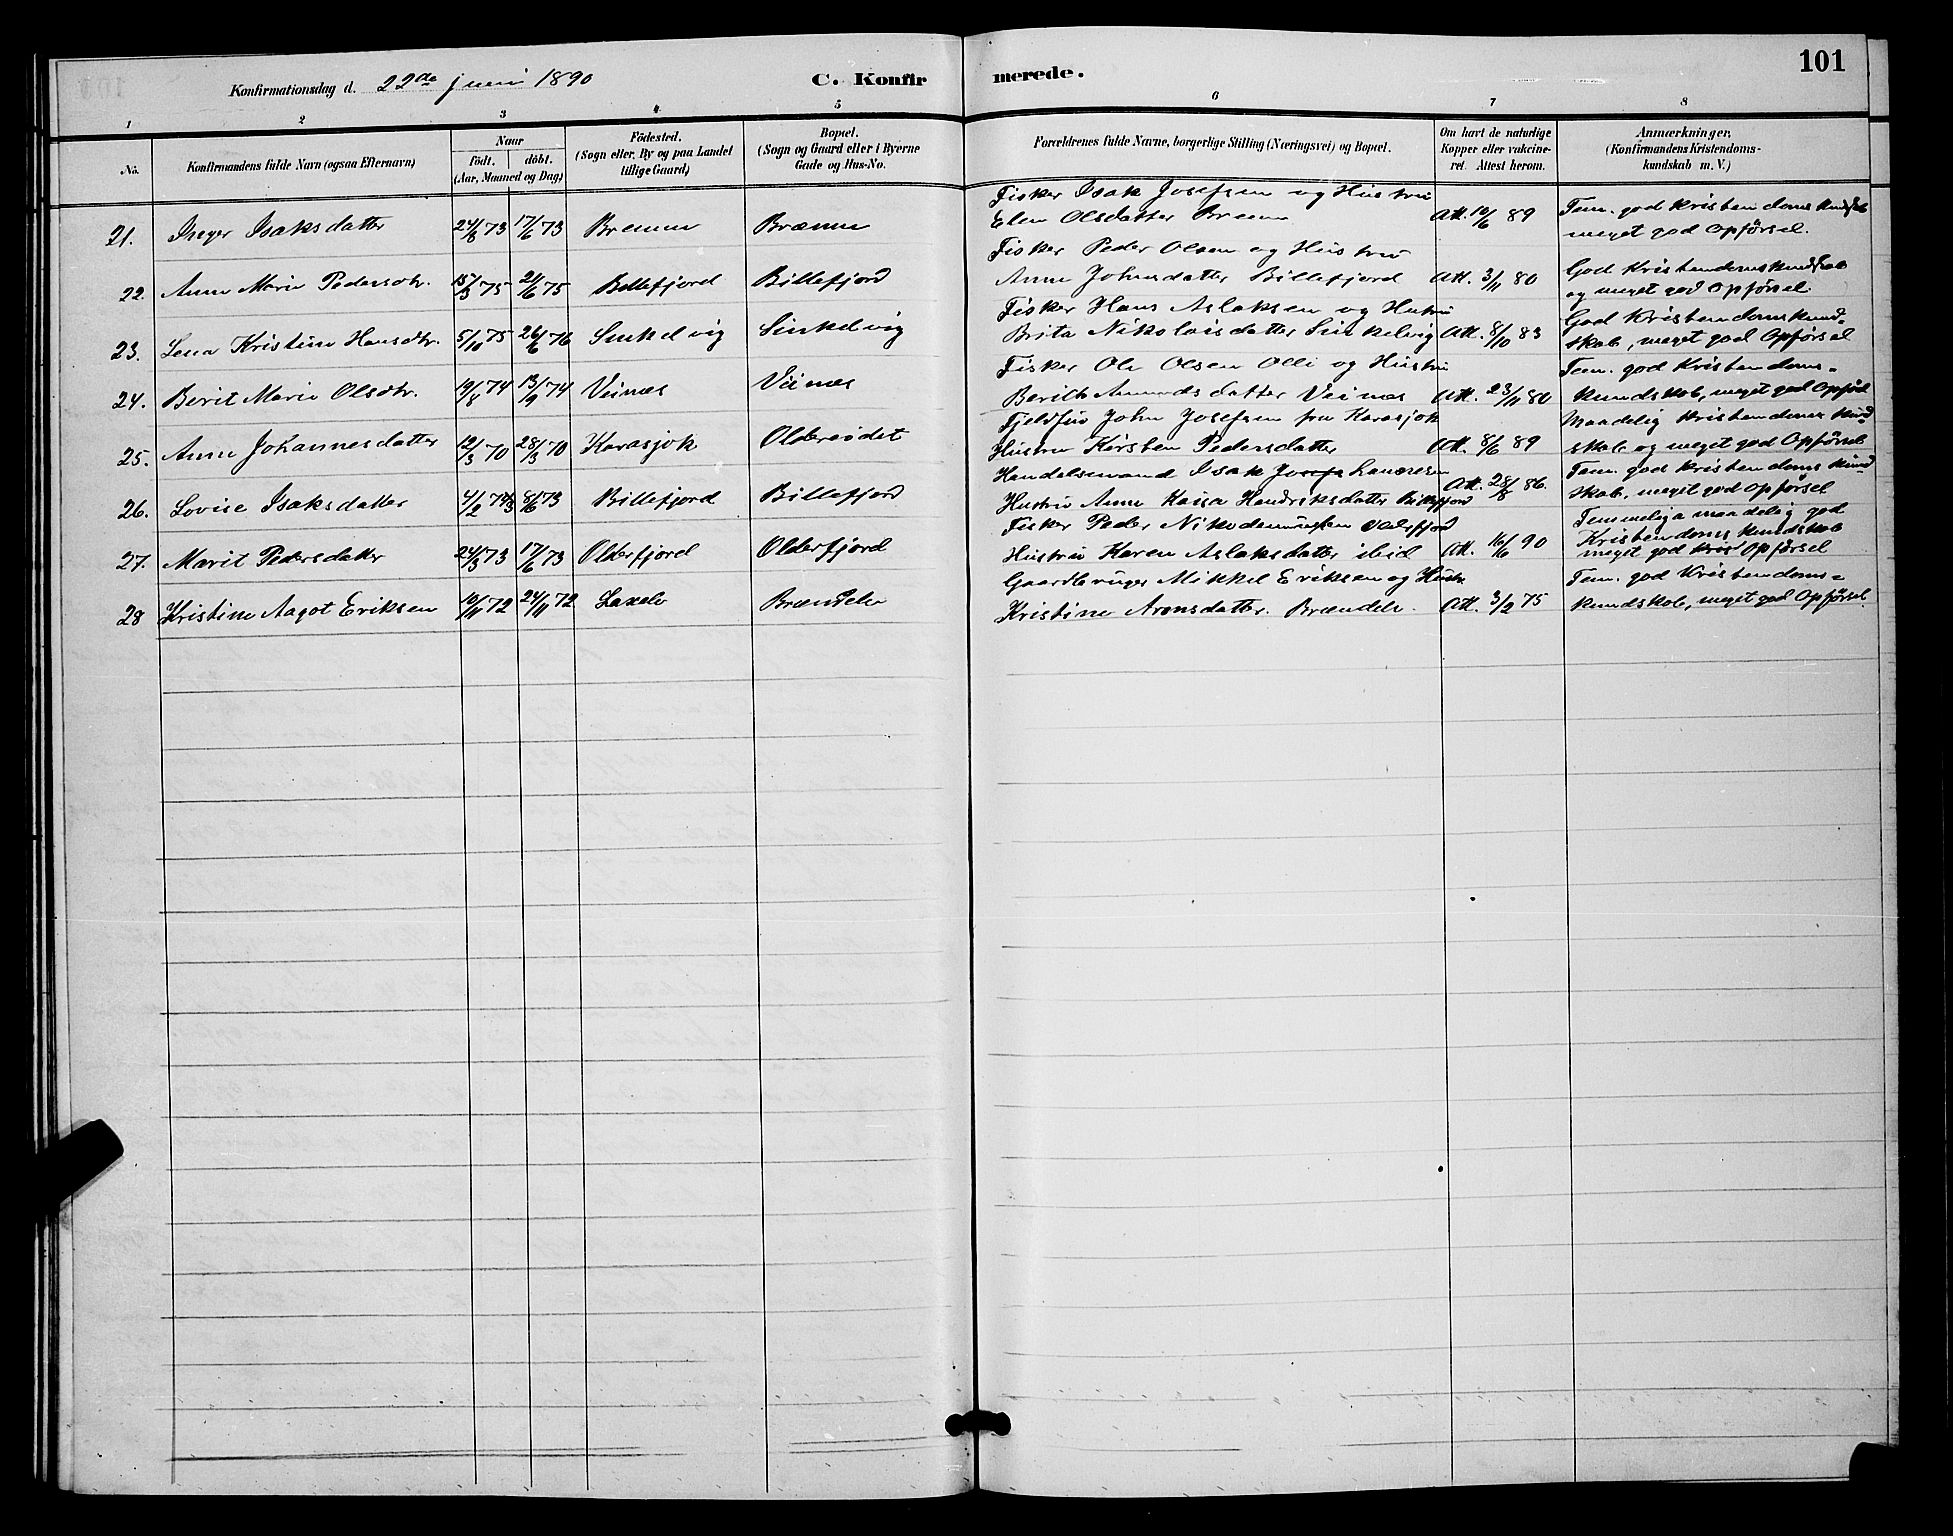 101
Konfirmationsdag d. 22de juni 1890
C. Konfirmerede.
1 2 3 4 5 6 7 8
No. Konfirmandens fulde Navn (ogsaa Efternavn) Naar født. døbt. (Aar, Maaned og Dag) Fødested. (Sogn eller By og paa Landet tillige Gaard) Bopæl. (Sogn og Gaard eller i Byerne Gade og Hus-No. Forældrenes fulde Navne, borgerlige Stilling (Næringsvei) og Bopæl. Om havt de naturlige Kopper eller vakcineret. Attest herom. Anmærkninger, (Konfirmandens Kristendomskundskab m. V.)
Fisker Isak Josefsen og Hustru
21. Inger Isaksdatter 24/8 73 17/6 73 Brenna Brænna Elen Olsdatter Brenna Att. 10/6 89 Tem. god Kristendoms Kundskab meget god Opførsel.
Fisker Peder Olsen og Hustru
22. Anne Marie Pedersdtr. 15/3 75 24/6 75 Billefjord Billefjord Anne Johnsdatter Billefjord Att. 3/11 80 God Kristendomskundskab og meget god Opførsel
Fisker Hans Aslaksen og Hustru
23. Lena Kristine Hansdtr. 5/10 75 26/6 76 Sinkelvig Sinkelvig Brita Nikolaisdatter Sinkelvig Att. 8/10 83 God Kristendomskundskab, meget god Opførsel
Fisker Ole Olsen Olli og Hustru
24. Berit Marie Olsdtr. 19/8 74 13/9 74 Veinæs Veinæs Berith Amundsdatter Veinæs Att. 23/11 80 Tem. god Kristendoms-kundskab, meget god Opførsel
Fjeldfin John Josefsen fra Karasjok
25. Anne Johannesdatter 12/3 70 28/3 70 Karasjok Oldereidet Hustru Kirsten Pedersdatter Att. 8/6 89 Maadelig Kristendoms Kundskab og meget god Opførsel
Handelsmand Isak Josefs Lauresen
26. Lovise Isaksdatter 4/2 73 8/6 73 Billefjord Billefjord Hustru Anne Kaisa Hendriksdatter Billefjord Att. 28/8 86. Tem. god Kristendoms Kundskab, meget god Opførsel
Fisker Peder Nikodemussen Olderfjord
27. Marit Pedersdatter 24/3 73 17/6 73 Olderfjord Olderfjord Hustru Karen Aslaksdatter ibid Att. 16/6 90 Temmelig maadelig god Kristendoms Kundskab meget god Kris Opførsel
Gaardbruger Mikkel Eriksen og Hustr.
28 Kristine Aagot Eriksen 10/11 72 24/11 72 Laxelv Brændelv Kristine Aronsdatter. Brændelv. Att. 3/2 75 Tem. god Kristendoms-kundskab, meget god Opførsel.